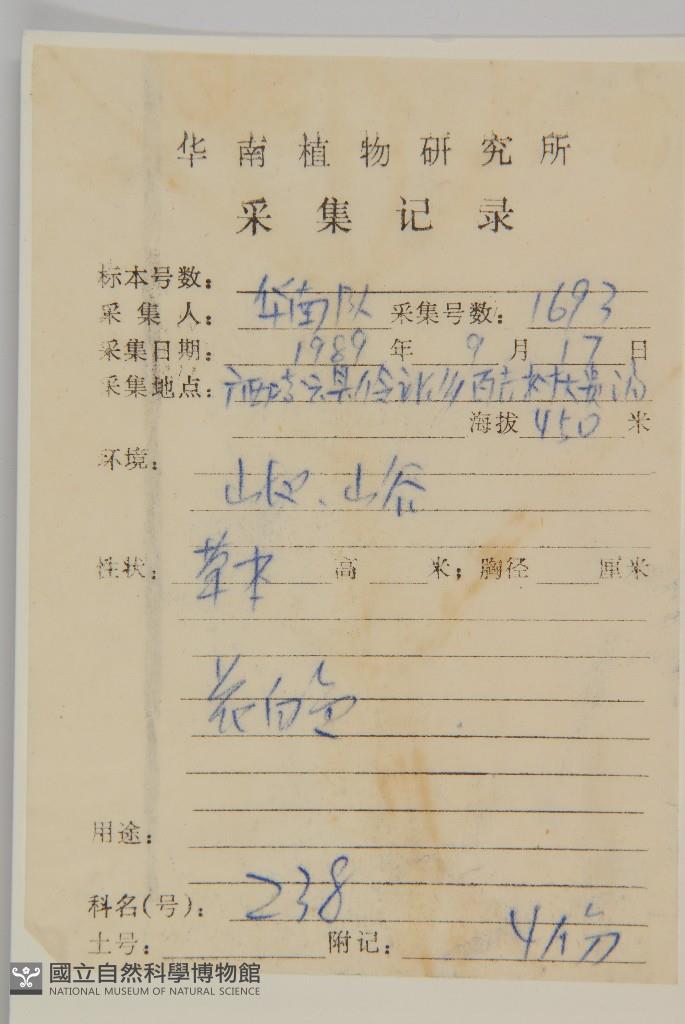 华南植物研究所
采集记录
标本号数：
采集人：华南队 采集号数：1693
采集日期：1989年9月17日
采集地点：广西
海拔450米
环境：
山坡、山谷
性状：草本 高 米；胸径 厘米
花白色
用途：
科名(号)：238
土号： 附记：4份
國立自然科學博物館
NATIONAL MUSEUM OF NATURAL SCIENCE